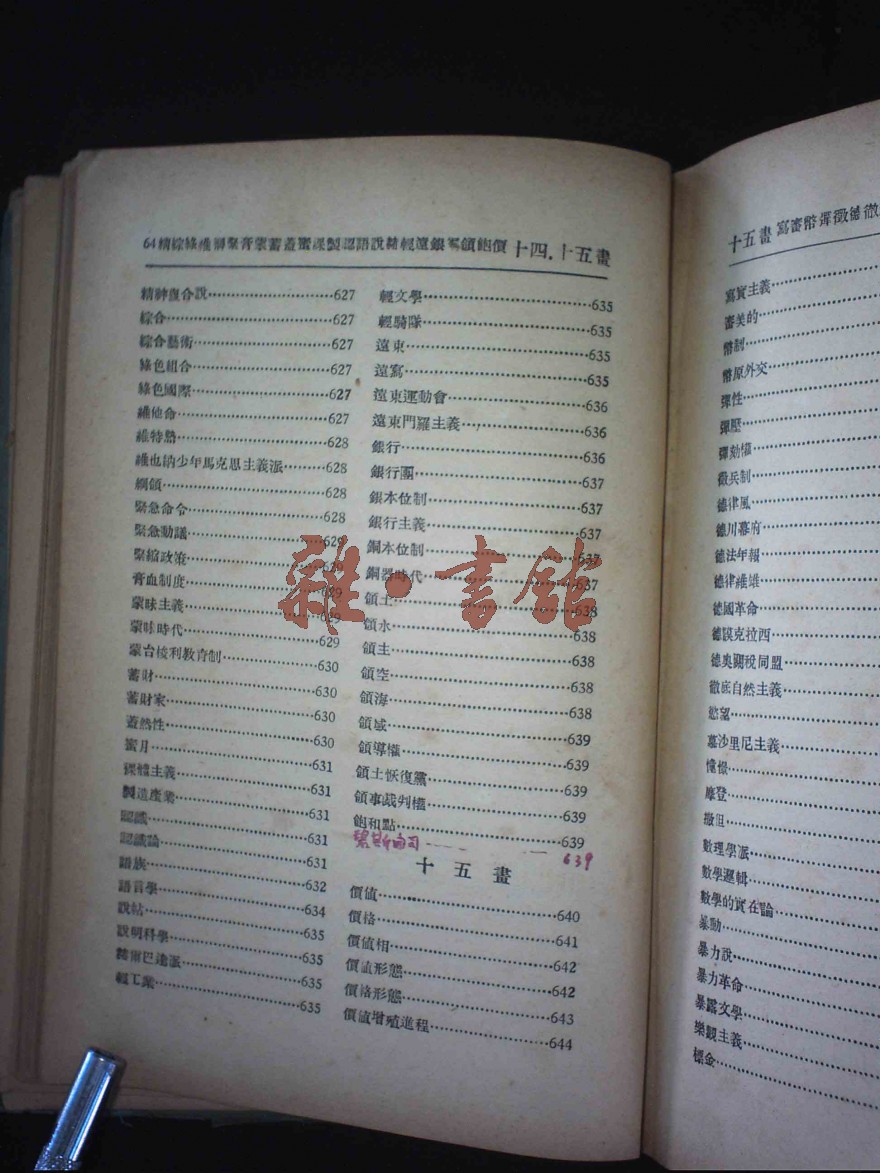 64 精綜綠維綱緊膏蒙蓄蓋蜜認語說輕遠銀領飽價 十四.十五畫
精神復合說 627
綜合 627
綜合藝術 627
綠色組合 627
綠色國際 627
維他命 627
維特熱 628
維也納少年馬克思主義派 628
綱領 628
緊急命令 628
緊急動議 629
緊縮政策 629
膏血制度 629
蒙昧主義 629
蒙昧時代 629
蒙台梭利教育制 630
蓄財 630
蓄財家 630
蓋然性 630
蜜月 631
裸體主義 631
製造產業 631
認識 631
認識論 631
語族 632
語言學 634
說帖 635
說明科學 635
赫爾巴達派 635
輕工業 635
輕文學 635
輕騎隊 635
遠東 635
遠寫 635
遠東運動會 636
遠東門羅主義 636
銀行 636
銀行團 637
銀本位制 637
銀行主義 637
銅本位制 637
銅器時代 637
領土 638
領水 638
領主 638
領空 638
領海 638
領域 639
領導權 639
領土恢復黨 639
領事裁判權 639
飽和點 639
639
十五畫
價值 640
價格 641
價值相 642
價值形態 642
價格形態 643
價值增殖進程 644
十五畫 寫審幣彈徵德徹
寫實主義
審美的
幣制
幣原外交
彈性
彈壓
彈劾權
徵兵制
德律風
德川幕府
德法年報
德律維雄
德國革命
德謨克拉西
德奧關稅同盟
徹底自然主義
慾望
慕沙里尼主義
憧憬
摩登
撒但
數理學派
數學邏輯
數學的實在論
暴動
暴力說
暴力革命
暴露文學
樂觀主義
標金
雜·書館